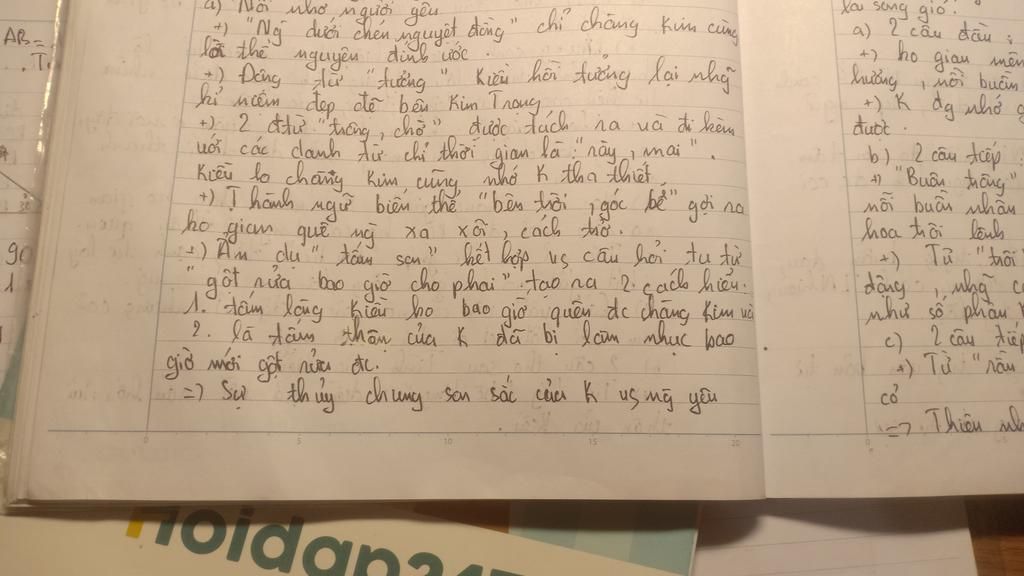 AB =
a) Nỗi nhớ người yêu
+) "Ng dưới chén nguyệt đồng" chỉ chàng Kim cùng
lời thề nguyên đính ước.
+) Động từ "tưởng" Kiều hồi tưởng lại nhg
kỉ niệm đẹp đẽ bên Kim Trọng
+) 2 đtừ "trông, chờ" được tách ra và đi kèm
với các danh từ chỉ thời gian là: "rày, mai".
Kiều lo chàng Kim cũng nhớ K tha thiết
+) Thành ngữ biến thể "bên trời, góc bể" gợi ra
ko gian quê ng xa xôi, cách trở.
+) Ẩn dụ "tấm son" kết hợp vs câu hỏi tu từ
"gột rửa bao giờ cho phai" tạo ra 2 cách hiểu.
1. tấm lòng Kiều ko bao giờ quên đc chàng Kim và
2. là tấm thân của K đã bị làm nhục bao
giờ mới gột rửa đc.
=> Sự thủy chung son sắc của K vs ng yêu
0 5 10 15 20
90
1
sóng gió.
a) 2 câu đầu:
+) ko gian mên
hướng, nỗi buồn
+) K đg nhớ g
được.
b) 2 câu tiếp:
+) "Buồn trông"
nỗi buồn nhân
hoa trôi lênh
+) Từ "trôi"
động, nhg c
như số phận
c) 2 câu tiếp
+) Từ "rầu
cỏ
=> Thiên nh
hoidap247